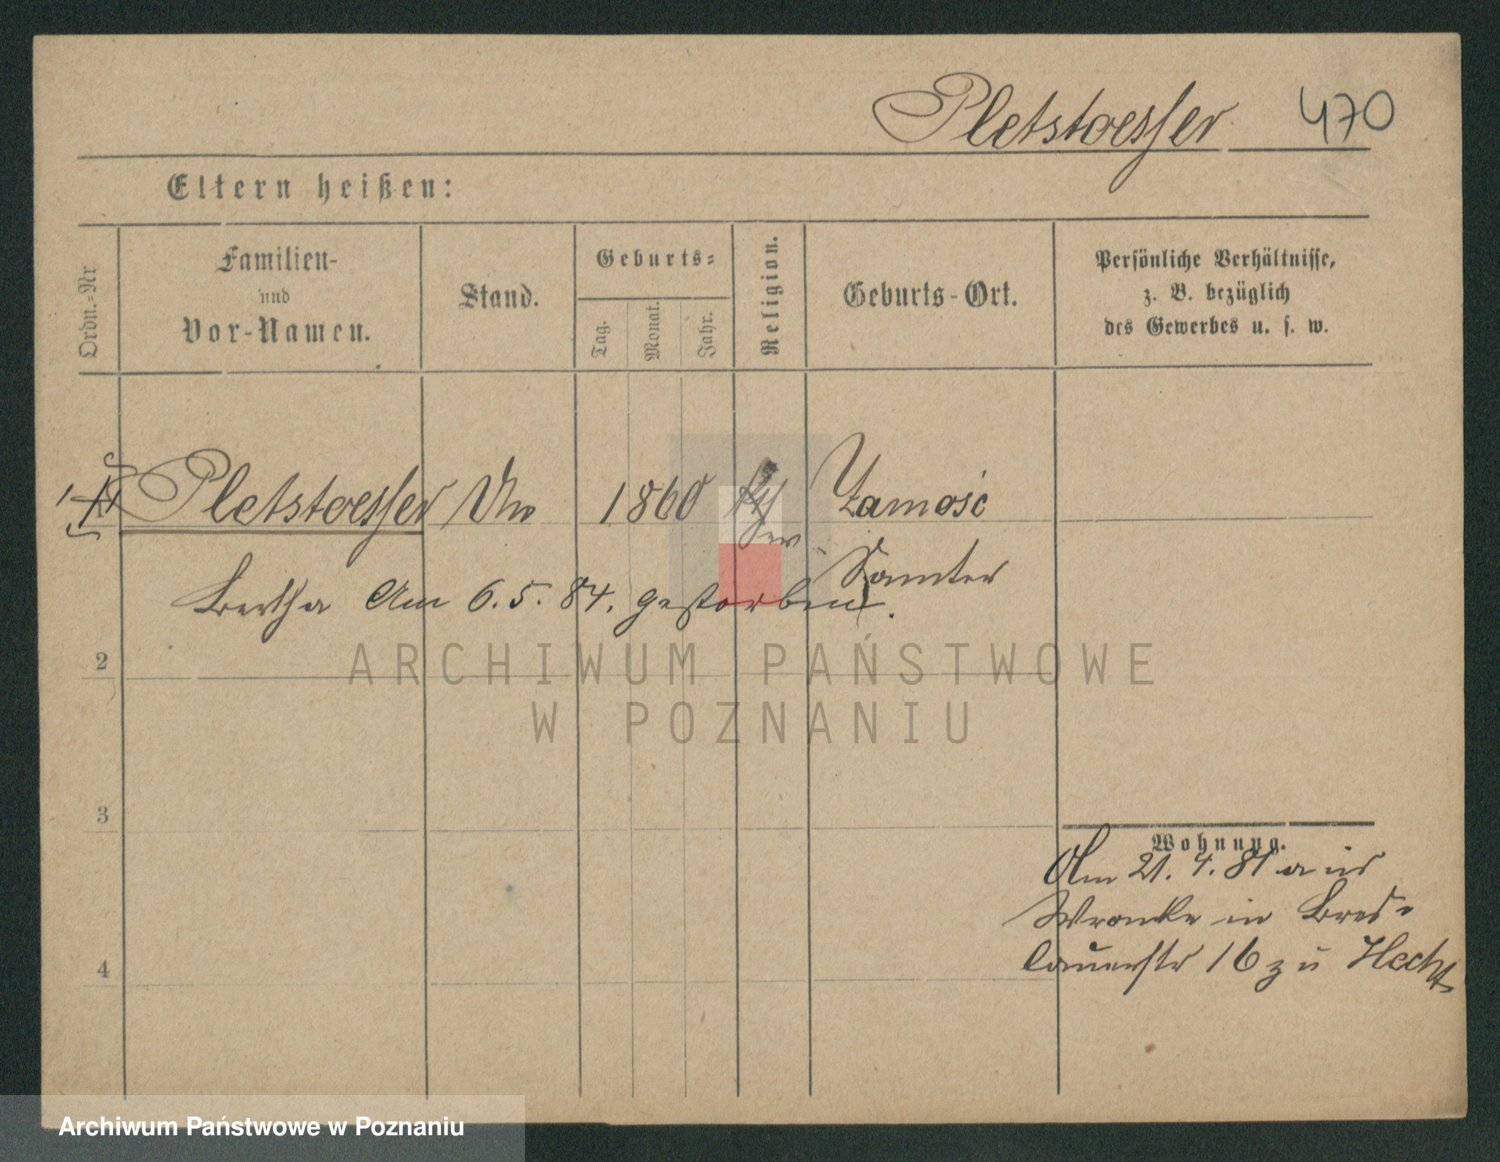 Pletstoesser 470
Eltern heißen:
Ordn.-Nr
Familien-
und
Vor-Namen.
Stand.
Geburts-
Tag.
Monat.
Jahr.
Religion.
Geburts-Ort.
Persönliche Verhältnisse,
z. B. bezüglich
des Gewerbes u. s. w.
Pletstoesser Un 1860 Zamosc
Samter
Bertha Am 6. 5. 84. gestorben.
2
3
4
Wohnung.
Am 21. 4. 81 aus
Wronke in Bres-
lauerstr 16 zu Hecht
ARCHIWUM PAŃSTWOWE
W POZNANIU
Archiwum Państwowe w Poznaniu